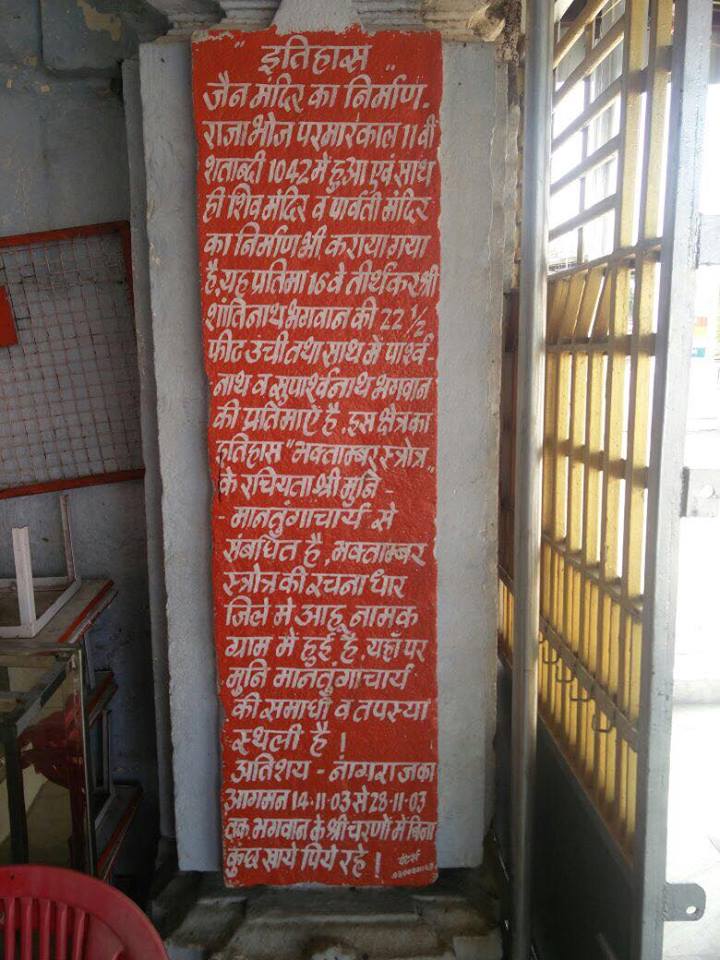 "इतिहास"
जैन मंदिर का निर्माण-
राजा भोज परमार काल 11 वी
शताब्दी 1042 मे हुआ एवं साथ
ही शिव मंदिर व पार्वती मंदिर
का निर्माण भी कराया गया
है, यह प्रतिमा 16 वे तीर्थकर श्री
शांतिनाथ भगवान की 22 1/2
फीट उंची तथा साथ में पार्श्व-
नाथ व सुपार्श्वनाथ भगवान
की प्रतिमाऐं है, इस क्षेत्र का
इतिहास "भक्ताम्बर स्त्रोत्र"
के रचियता श्री मुनि-
-मानतुंगाचार्य से
संबधित है, भक्ताम्बर
स्त्रोत्र की रचना धार
जिले मे आहू नामक
ग्राम में हुई है, यहाँ पर
मुनि मानतुंगाचार्य
की समाधी व तपस्या
स्थली है!
अतिशय - नागराज का
आगमन 14-11-03 से 28-11-03
तक भगवान के श्री चरणों में बिना
कुछ खाये पिये रहे!